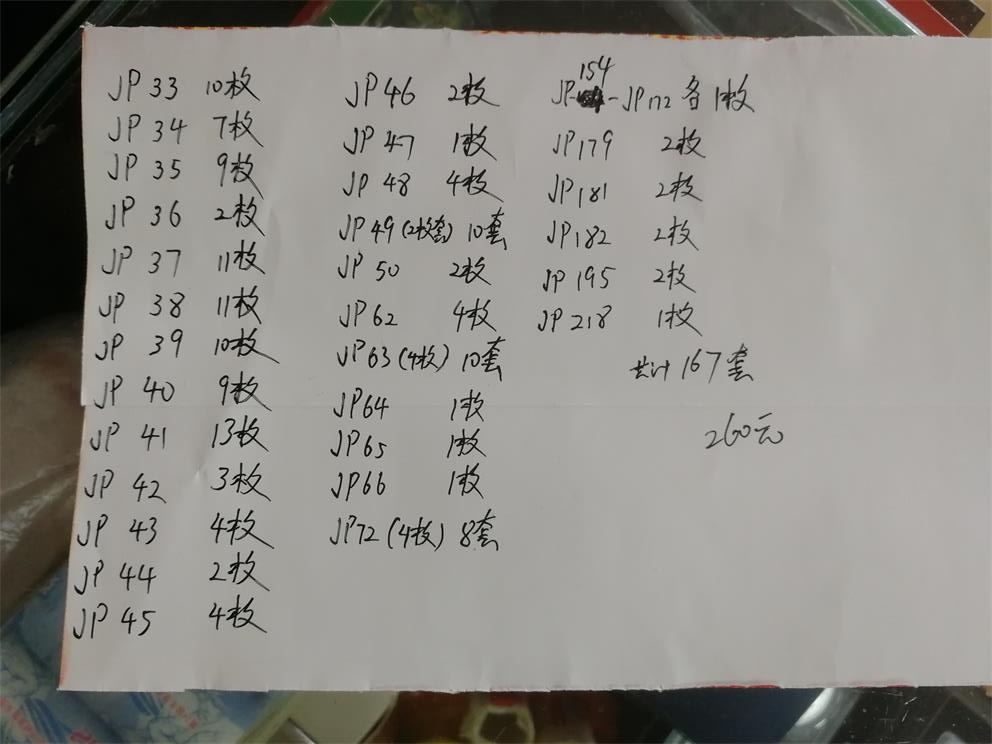 JP 33 10枚
JP 34 7枚
JP 35 9枚
JP 36 2枚
JP 37 11枚
JP 38 11枚
JP 39 10枚
JP 40 9枚
JP 41 13枚
JP 42 3枚
JP 43 4枚
JP 44 2枚
JP 45 4枚
JP 46 2枚
JP 47 1枚
JP 48 4枚
JP 49 (2枚套) 10套
JP 50 2枚
JP 62 4枚
JP 63 (4枚) 10套
JP64 1枚
JP65 1枚
JP66 1枚
JP72 (4枚) 8套
JP154-JP172 各1枚
JP179 2枚
JP181 2枚
JP182 2枚
JP195 2枚
JP218 1枚
共计167套
260元